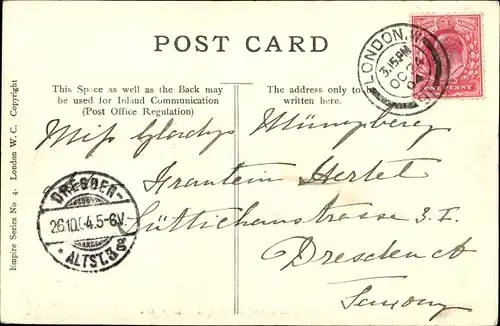 POST CARD
This Space as well as the Back may
be used for Inland Communication
(Post Office Regulation)
The address only to be
written here.
LONDON. W.
3.15 PM
OC 24
04
ONE PENNY
Miss Gladys Münzberg
Fraulein Hertel
Lüttichaustrasse 3. I.
Dresden A
Saxony
DRESDEN-
26.10.04.5-6V.
ALTST.
Empire Series No 4. London W. C. Copyright